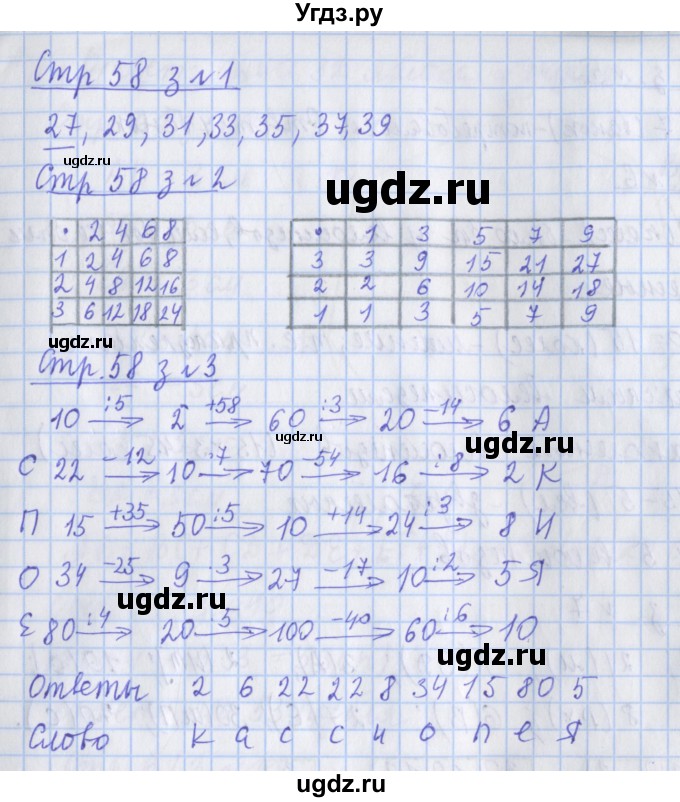 Угдз.ру
Стр 58 з №1
27, 29, 31, 33, 35, 37, 39
ugdz.ru
Стр 58 з №2
ugdz.ru
· 2 4 6 8
1 2 4 6 8
2 4 8 12 16
3 6 12 18 24
· 1 3 5 7 9
3 3 9 15 21 27
2 2 6 10 14 18
1 1 3 5 7 9
ugdz.ru
ugdz.ru
Стр. 58 з №3
10 :5→ 2 +58→ 60 :3→ 20 -14→ 6 А
ugdz.ru
С 22 -12→ 10 ·7→ 70 -54→ 16 :8→ 2 К
П 15 +35→ 50 :5→ 10 +14→ 24 :3→ 8 И
О 34 -25→ 9 ·3→ 27 -17→ 10 :2→ 5 Я
ugdz.ru
Е 80 :4→ 20 ·5→ 100 -40→ 60 :6→ 10
ugdz.ru
Ответы 2 6 22 22 8 34 15 80 5
ugdz.ru
Слово К а с с и о п е я
ugdz.ru